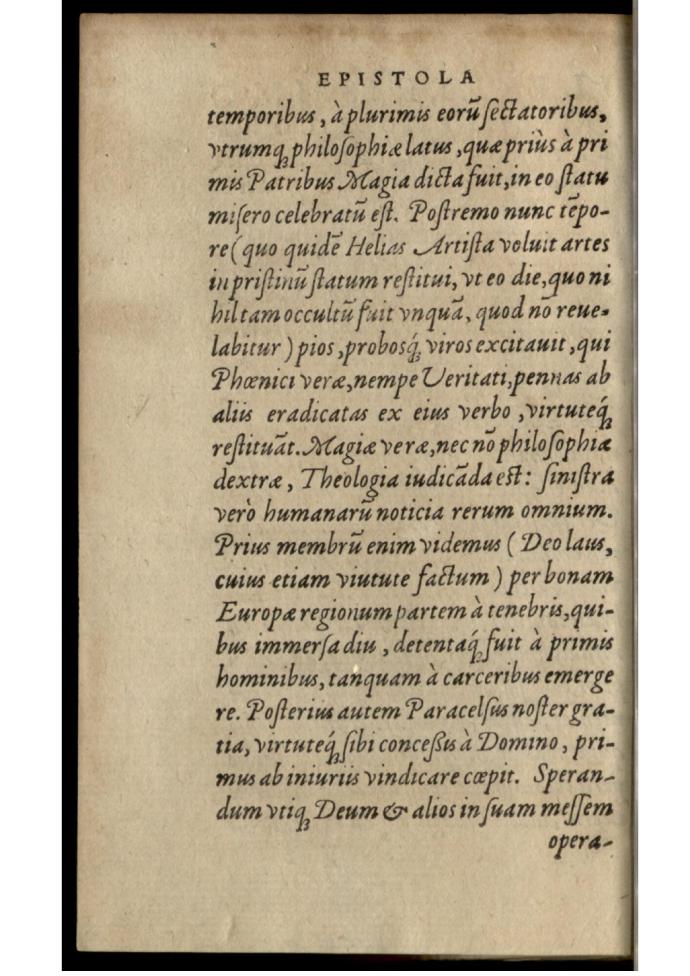 EPISTOLA
temporibus, à plurimis eorũ sectatoribus,
vtrumq; philosophiæ latus, quæ priùs à pri
mis Patribus Magia dicta fuit, in eo statu
misero celebratũ est. Postremo nunc tẽpo-
re (quo quidẽ Helias Artista voluit artes
in pristinũ statum restitui, vt eo die, quo ni
hil tam occultũ fuit vnquã, quod nõ reue-
labitur) pios, probosq́; viros excitauit, qui
Phœnici veræ, nempe Veritati, pennas ab
aliis eradicatas ex eius verbo, virtuteq́;
restituãt. Magiæ veræ, nec nõ philosophiæ
dextræ, Theologia iudicãda est: sinistra
verò humanarũ noticia rerum omnium.
Prius membrũ enim videmus (Deo laus,
cuius etiam viutute factum) per bonam
Europæ regionum partem à tenebris, qui-
bus immersa diu, detentaq́; fuit à primis
hominibus, tanquam à carceribus emerge
re. Posterius autem Paracelsus noster gra-
tia, virtuteq́; sibi concessis à Domino, pri-
mus ab iniuriis vindicare cœpit. Speran-
dum vtiq; Deum & alios in suam messem
opera-